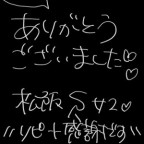 ありがとう
ございました♡♡
松阪 S 42♡
"リピート感謝です"